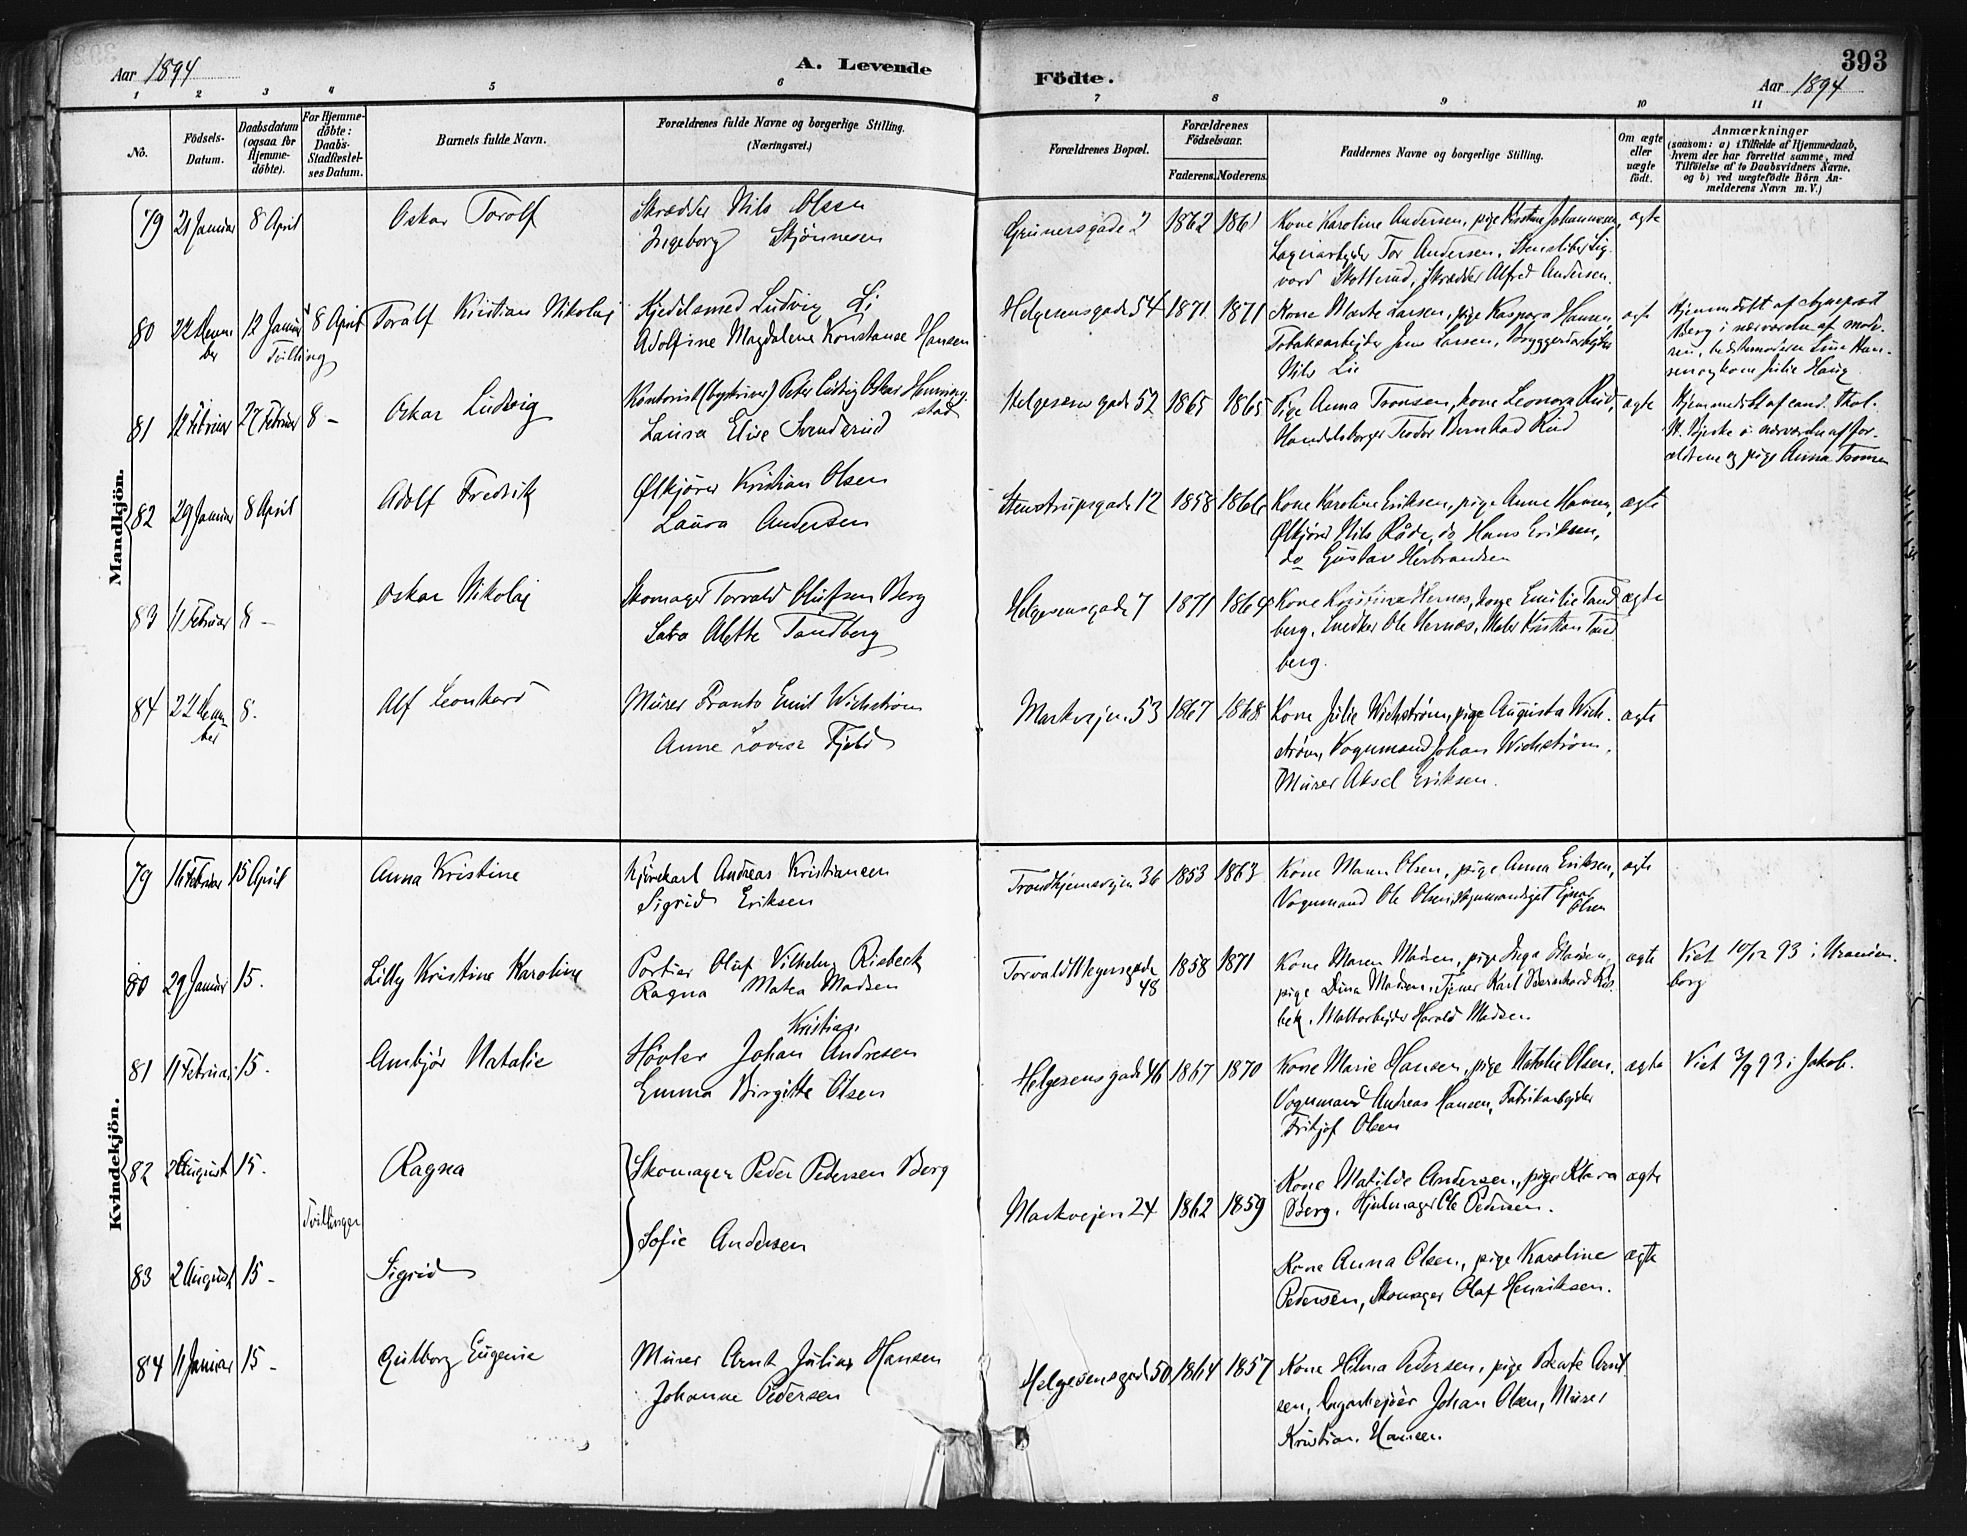 Aar 1894
A. Levende
Födte.
393
Aar 1894
1 2 3 4 5 6 7 8 9 10 11
No.
Födsels-Datum.
Daabsdatum (ogsaa for Hjemme-döbte).
For Hjemme-döbte: Daabs-Stadfæstel-ses Datum.
Barnets fulde Navn.
Forældrenes fulde Navne og borgerlige Stilling. (Næringsvei.)
Forældrenes Bopæl.
Forældrenes Födselsaar.
Faderens. Moderens.
Faddernes Navne og borgerlige Stilling.
Om ægte eller uægte födt.
Anmærkninger
(saasom: a) i Tilfælde af Hjemmedaab, hvem der har forrettet samme, med Tilföielse af to Daabsvidners Navne, og b) ved uægtefödte Börn An-melderens Navn m. V.)
Mandkjön.
79 21 Januar 8 April Oskar Torolf Skrædder Nils Olsen
Ingeborg Skjönnesen
Grünersgade 2 1862 1861 Kone Karoline Andersen, pige Kristine Johannesen, ægte
Lagerarbeider Tor Andersen, Stensliber Sig-
vard Skotterud, Skrædder Alfred Andersen.
80 12 Januar 8 April Toralf Kristian Nikolaj Kjedelsmed Ludvig Li
Tvilling Adolfine Magdalene Konstanse Hansen
Helgesensgade 54 1871 1871 Kone Marte Larsen, pige Kaspara Hansen, ægte
Tobaksarbejder Jens Larsen, Bryggeriarbejder
Nils Lie
Berg i nærværelse af mode-
ren, bedstemoderen Line Han-
sen og kone Julie Haug
81 12 Februar 27 Februar 8 - Oskar Ludvig Kontorist (bogskriver) Peter Ludvig Oskar Henning-
stad
Laura Elise Svendsrud
Helgesens gade 52 1865 1865 Pige Anna Tronsen, kone Leonora Rud, ægte
Handelsborger Teodor Bernhard Rud
Hjemmedöbt af cand. theol.
i nærværelse af for-
ældrene og pige Anna Tronsen
82 29 Januar 8 April Adolf Fredrik Ølkjører Kristian Olsen
Laura Andersen
Stenstrupsgade 12 1858 1866 Kone Karoline Eriksen, pige Anne Hansen, ægte
Ølkjører Nils Råde, do Hans Eriksen,
do Gustav Herbrandsen
83 11 Februar 8 - Oskar Nikolaj Skomager Torvald Olufsen Berg
Alette Tandberg
Helgesensgade 7 1871 1864 Kone Kristine Hernes, kone Emilie Tand- ægte
berg, Snedker Ole Hernæs, Maler Kristian Tand
berg.
84 8. Alf Leonhard Murer Frants Emil Wichstrøm
Anne Lovise Fjeld
Markvejen 53 1867 1868 Kone Julie Wichstrøm, pige Augusta Wich- ægte
strøm, Vognmand Johan Wichstrøm,
Murer Aksel Eriksen.
Kvindekjön.
79 16 Februar 15 April Anna Kristine Kjørekarl Andreas Kristiansen
Sigrid Eriksen
Trondhjemsvejen 36 1853 1863 Kone Maren Olsen, pige Anna Eriksen, ægte
Vognmand Ole Olsen, Ejnar
Olsen
80 29 Januar 15. Lilly Kristine Karoline Portier Oluf Vilhelm Risbeck
Ragna Matea Madsen
Torvald Meyersgade 48 1858 1871 Kone Maren Madsen, pige Inga Madsen, ægte
pige Dina Madsen, Tjener Karl Bernhard Ris-
bek, Maltarbejder Harald Madsen
Viet 10/12 93 i Uranien-
borg
81 11 Februar 15. Ambjør Natalie Høvler Johan Kristian Andresen
Emma Birgitte Olsen
Helgesensgade 46 1867 1870 Kone Marie Hansen, pige Natalie Olsen, ægte
Vognmand Andreas Hansen, Fabrikarbejder
Fritjof Olsen
Viet 3/9 93 i Jakob.
82 2 August 15. Ragna Skomager Peder Pedersen Berg
Tvillinger
Sofie Andersen
Markvejen 24 1862 1859
Kone Matilde Andersen, pige Klara ægte
Berg, Hjulmager Ole Pedersen.
83 2 August 15 - Sigrid
Kone Anna Olsen, pige Karoline ægte
Pedersen, Skomager Olaf Henriksen.
84 11 Januar 15 - Gulborg Eugenie Murer Arnt Julius Hansen
Johanne Pedersen
Helgesensgade 50 1864 1857 Kone Hilma Pedersen, pige Beate Arnt-
sen, Johan Olsen, Murer
Kristian Hansen.